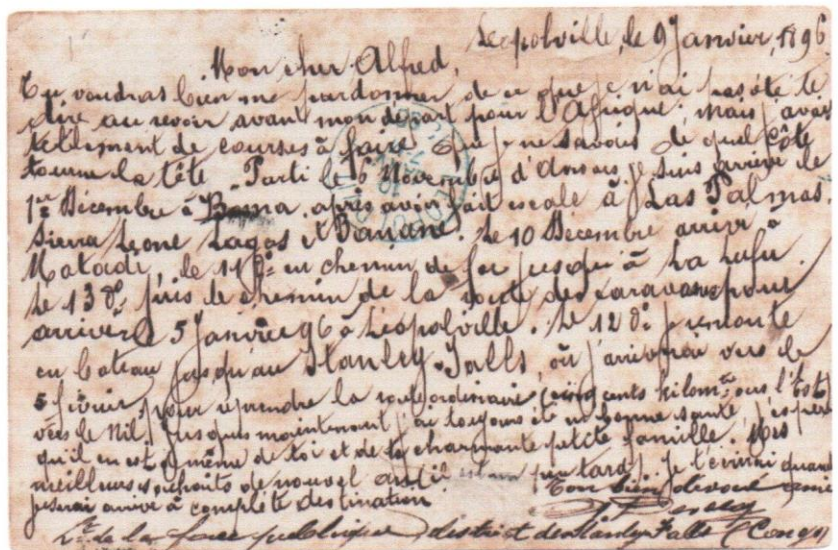 Leopolville, le 9 Janvier, 1896
Mon cher Alfred,
Tu voudras bien me pardonner de ce que je n'ai pas été te
dire au revoir avant mon départ pour l'Afrique; mais j'avais
tellement de courses à faire que je ne savais de quel côté
tourner la tête. Parti le 6 Novembre d'Anvers, je suis arrivé le
1er Décembre à Boma, après avoir fait escale à Las Palmas
Sierra Leone Lagos et Banane. Le 10 Décembre arrivé à
Matadi, le 11 do en chemin de fer jusqu'à La Lufu.
Le 13 do, pris le chemin de la route des caravanes pour
arriver le 5 Janvier 96 à Léopolville. Le 12 do je remonte
en bateau jusqu'au Stanley-Falls, où j'arriverai vers le
5 février, pour reprendre la route ordinaire (cinq cents kilom. vers l'Est)
vers le Nil. Jusque maintenant j'ai toujours été en bonne santé, j'espère
qu'il en est de même de toi et de ta charmante petite famille. Mes
meilleurs souhaits de nouvel an (il est un peu tard). Je t'écrirai quand
je serai arrivé à complète destination.
Ton bien dévoué ami
Lt de la force publique, district des Stanley Falls (Congo)